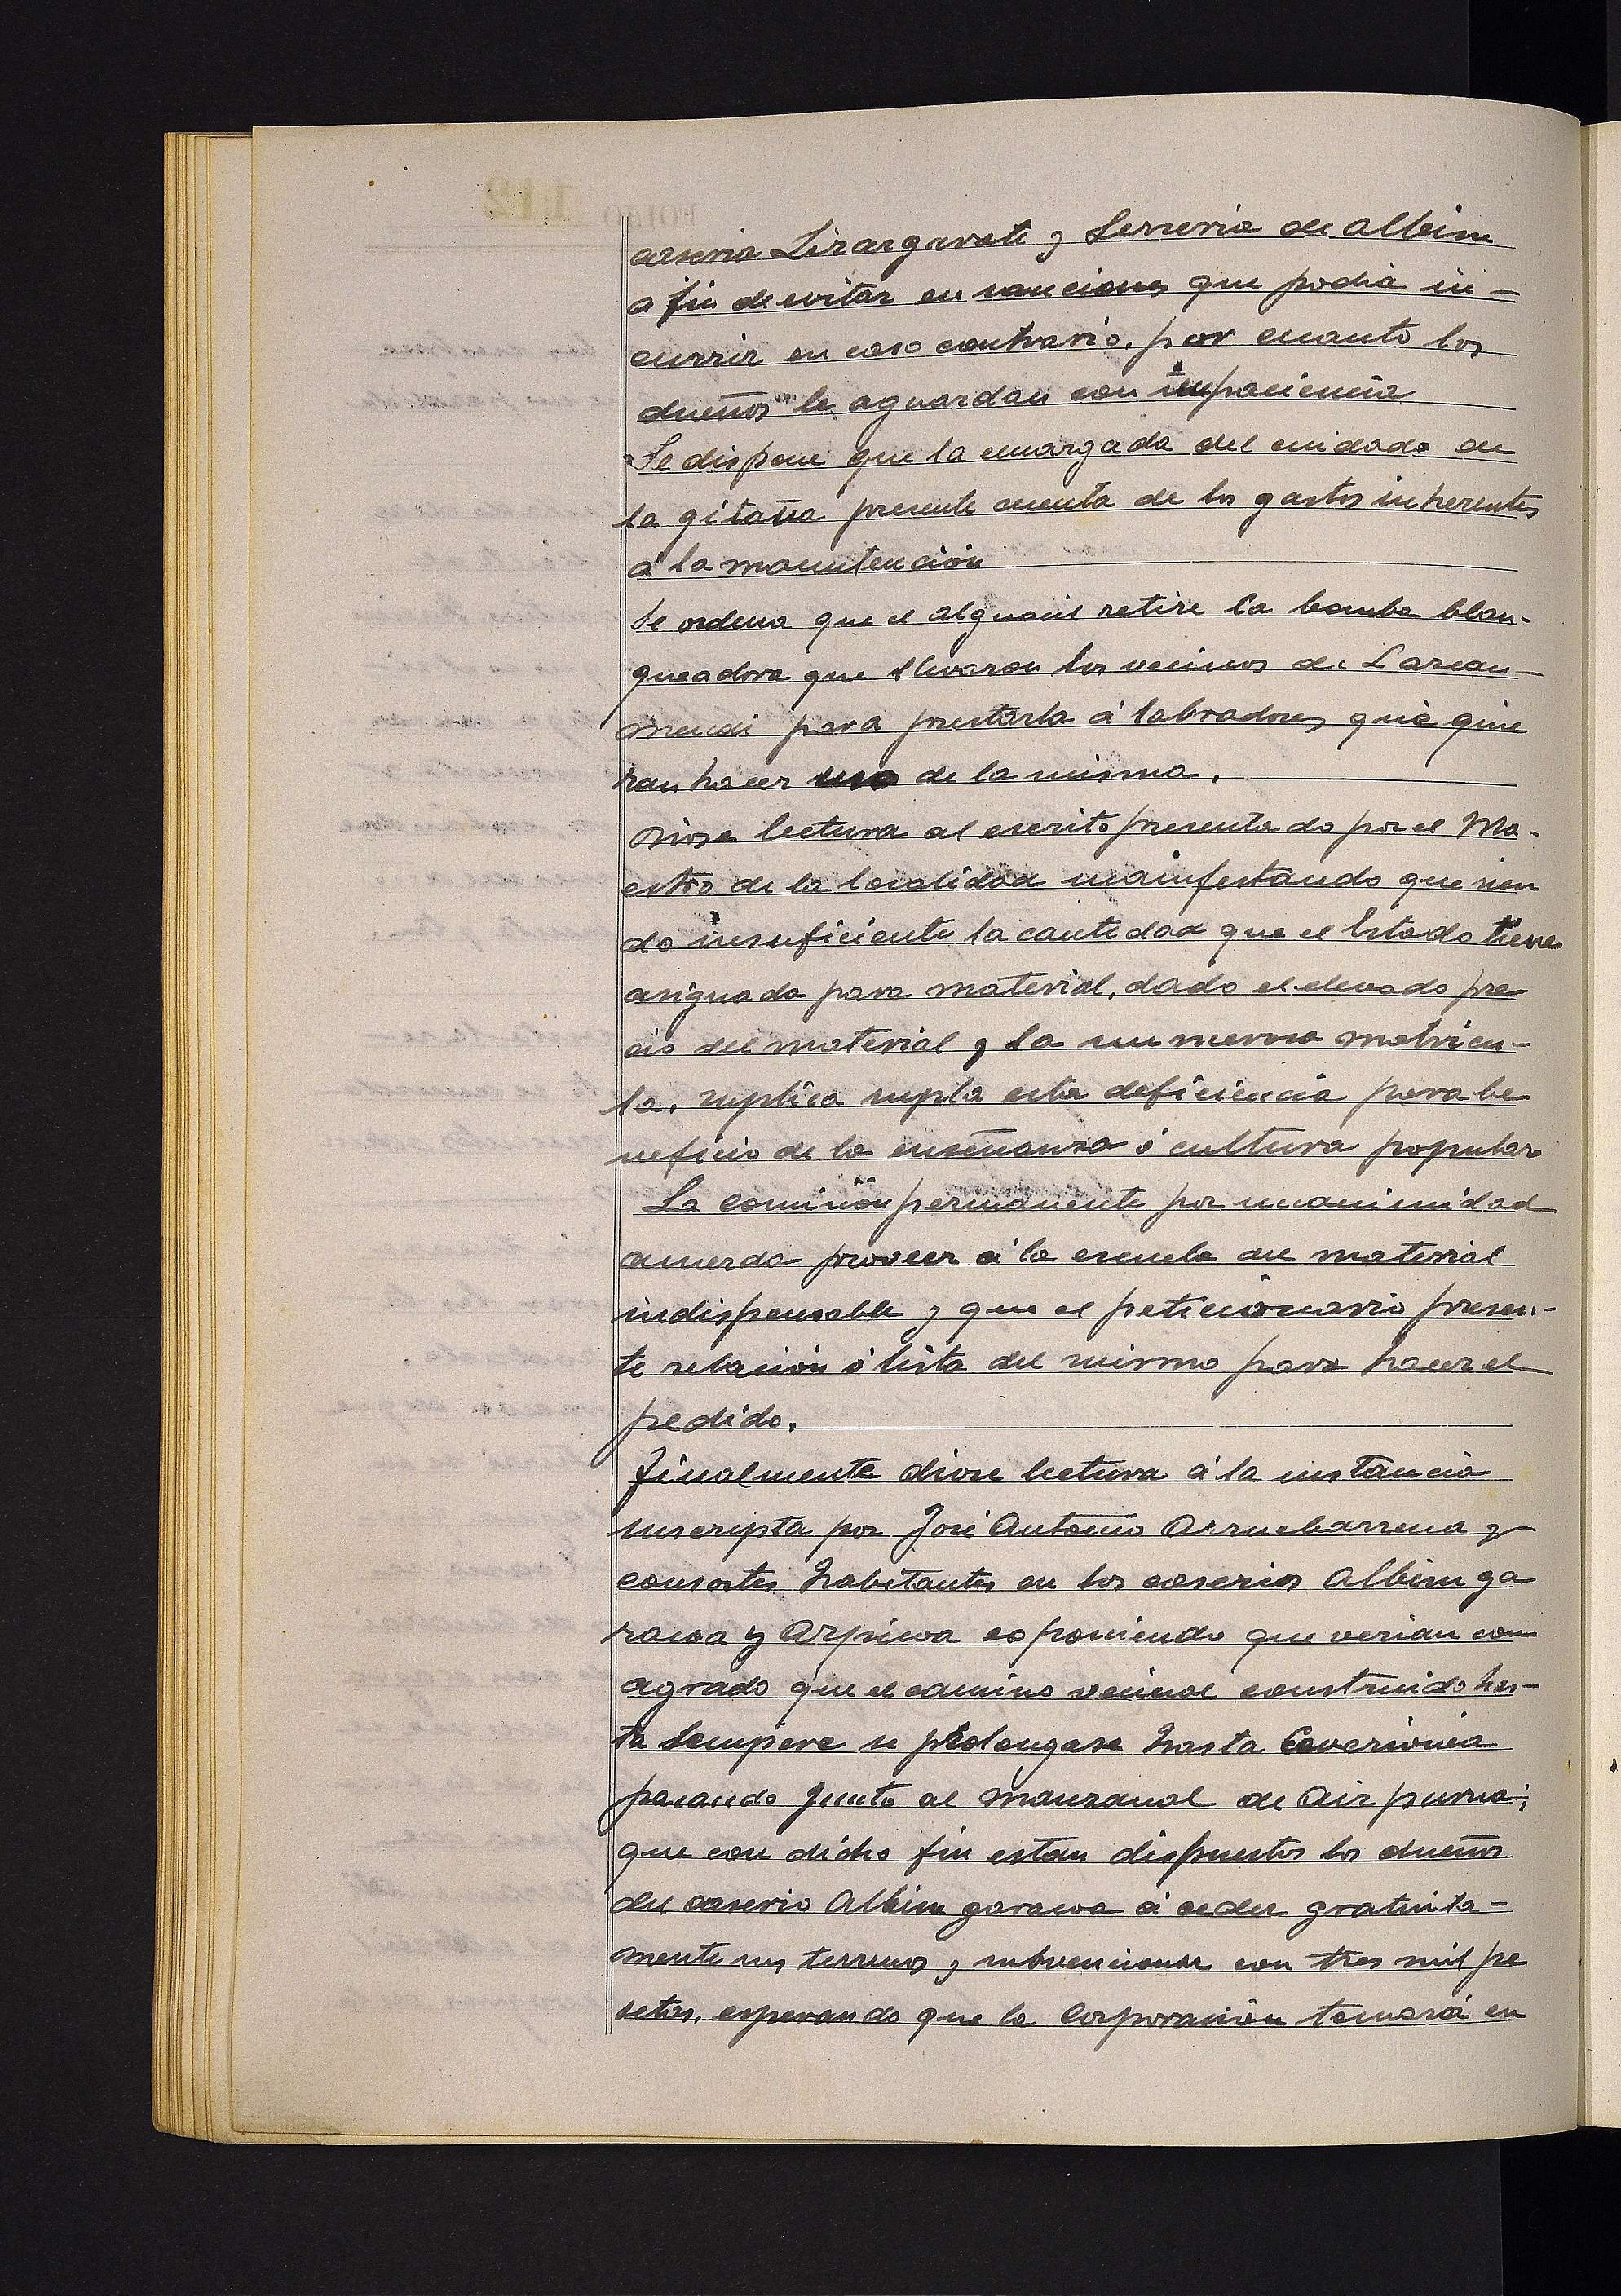 caserio Lizargarate y Serreria de Albim
a fin de evitar en sanciones que podia in-
currir en caso contrario, por cuanto los
dueños le aguardan con impaciencia
Se dispone que la encargada del cuidado de
la gitana presente cuenta de los gastos inherentes
á la manutencion
Se ordena que el alguacil retire la bomba blan-
queadora que llevaron los vecinos de Larcau-
mendi para prestarla á labradores que quie
ran hacer uso de la misma.
Diose lectura al escrito presentado por el Ma-
estro de la localidad manifestando que sien
do insuficiente la cantidad que el Estado tiene
asignada para material, dado el elevado pre
cio del material y la numerosa matricu-
la, suplica supla esta deficiencia para be
neficio de la enseñanza ó cultura popular
La comisión permanente por unanimidad
acuerda proveer á la escuela de material
indispensable y que el peticionario presen-
te relación ó lista del mismo para hacer el
pedido.
Finalmente diose lectura á la instancia
suscripta por José Antonio Arruebarrena y
consortes habitantes en los caserios Albim ga
racoa y Azpicoa esponiendo que verian con
agrado que el camino vecinal construido has-
ta Sempere se prolongase hasta
pasando junto al manzanal de Airpurua;
que con dicho fin estan dispuestos los dueños
del caserio Albim garacoa á ceder gratuita-
mente sus terrenos y subvencionar con tres mil pe
setas, esperando que la Corporación tomará en